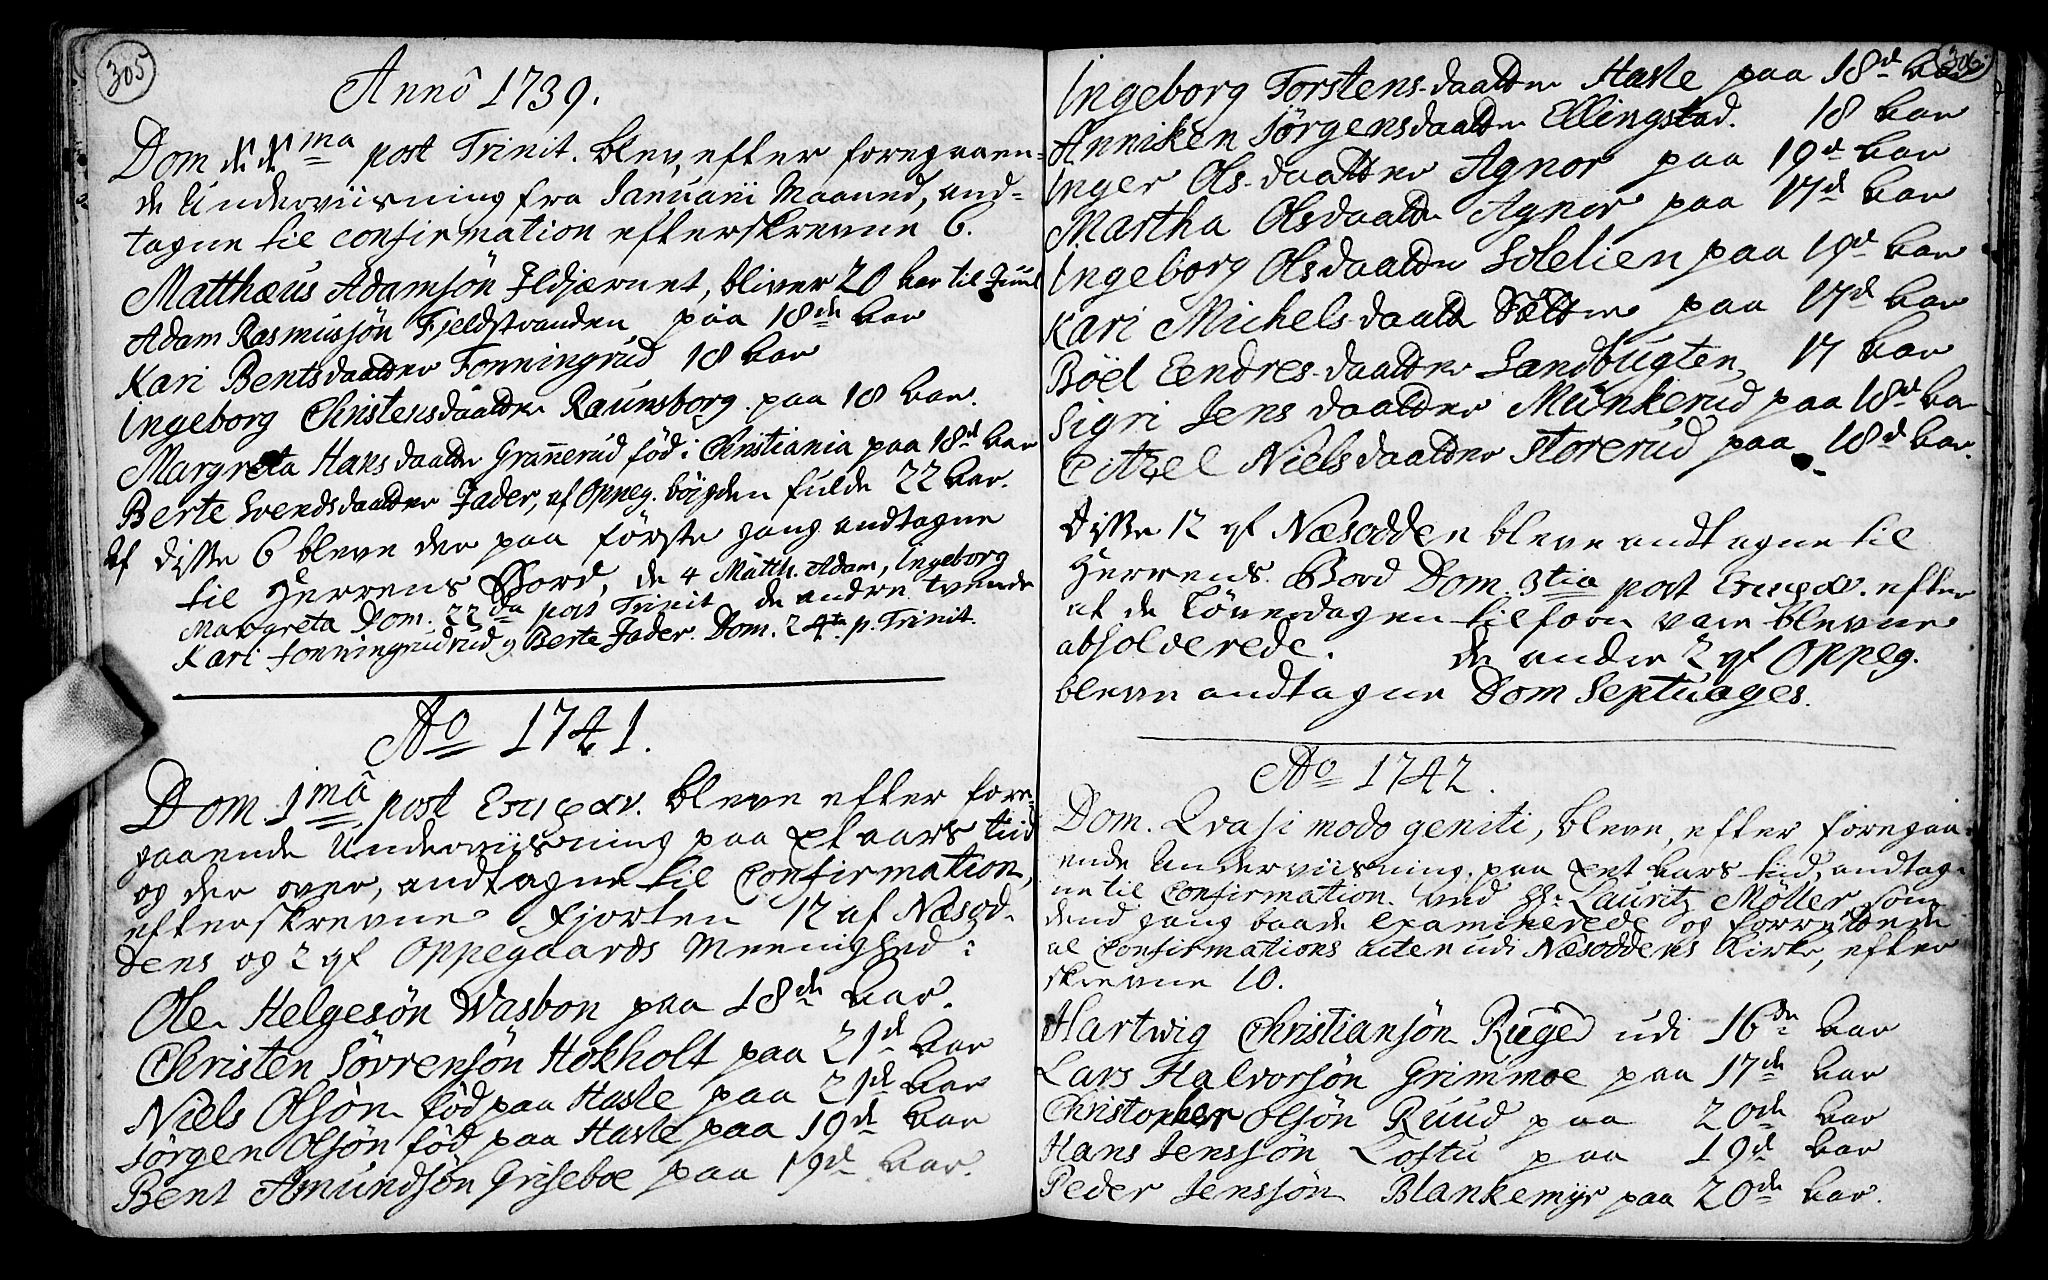 305
Anno 1739.
Dom post Trinit. blev efter foregaaen-
de Underviisning fra Januarii Maaned, and-
tagne til confirmation efterskrevne 6.
Matthæus Adamsøn Ildjærnet, bliver 20 Aar til Juul
Adam Rasmussøn Fjeldstranden paa 18de Aar
Kari Bentsdaatter Fonningrud 18 Aar
Ingeborg Christensdaatter Raunsborg paa 18 Aar.
Margreta Hansdaatter Grannerud fød i Christiania paa 18d Aar
Berte Svendsdaatter Jader, af Oppeg. bøigden fulde 22 Aar.
Af disse 6 bleve der paa første gang andtagne
til Herrens Bord, de 4 Matth. Adam, Ingeborg
Margreta Dom. 22da post Trinit de andre tvende
Kari Fonningrudrud og Berte Jader. Dom. 24ta p. Trinit.
Ao 1741.
Dom 1ma post bleve efter fore-
gaaende Underviisning paa Et aars tiid
og der over, andtagne til Confirmation,
efterskrevne Fjorten 12 af Næsod-
dens og 2 af Oppegaards Meenighed:
Ole Helgesøn Wasbon paa 18de Aar.
Christen Sørrensøn Hokholt paa 21d Aar
Niels Olsøn fød paa Hasle paa 21d Aar
Jørgen Olsøn fød paa Hasle paa 19d Aar
Bent Amundsøn Griseboe paa 19d Aar.
306
Ingeborg Torstens-daatter Hasle paa 18d Aar
Anniken Jørgensdaatter Ellingstad. 18 Aar
Inger Ols-daatter Agnor paa 19d Aar
Martha Olsdaatter Agnor paa 17d Aar
Ingeborg Olsdaatter Solelien paa 19d Aar
Kari Michels-daatter Sættre paa 17d Aar
Bøel Eendres-daatter Sandbugten 17 Aar
Sigri Jens daatter Munkerud paa 18d Aa
Citzel Nielsdaatter Storerud paa 18d Aar.
Disse 12 af Næsodden bleve andtagne til
Herrens Bord Dom. 3tia post efter
at de Løverdagen tilforn vare blevne
absolverede. De andre 2 af Oppeg.
bleve andtagne Dom Septuages.
Ao 1742.
Dom. Qvasi modo geniti, bleve, efter foregaa-
ende Underviisning paa Eet Aars tiid, andtag-
ne til Confirmation. ved Hr. Lauritz Møller som
dend gang baade examinerede og forrettede
al Confirmations acten udi Næsoddens Kirke, efter
skrevne 10.
Hartwig Christiansøn Ruge udi 16de Aar
Lars Halvorsøn Grimmoe paa 17de Aar
Christopher Olsøn Ruud paa 20de Aar
Hans Jenssøn Loftu paa 19d Aar
Peder Jenssøn Blankemyr paa 20de Aar.